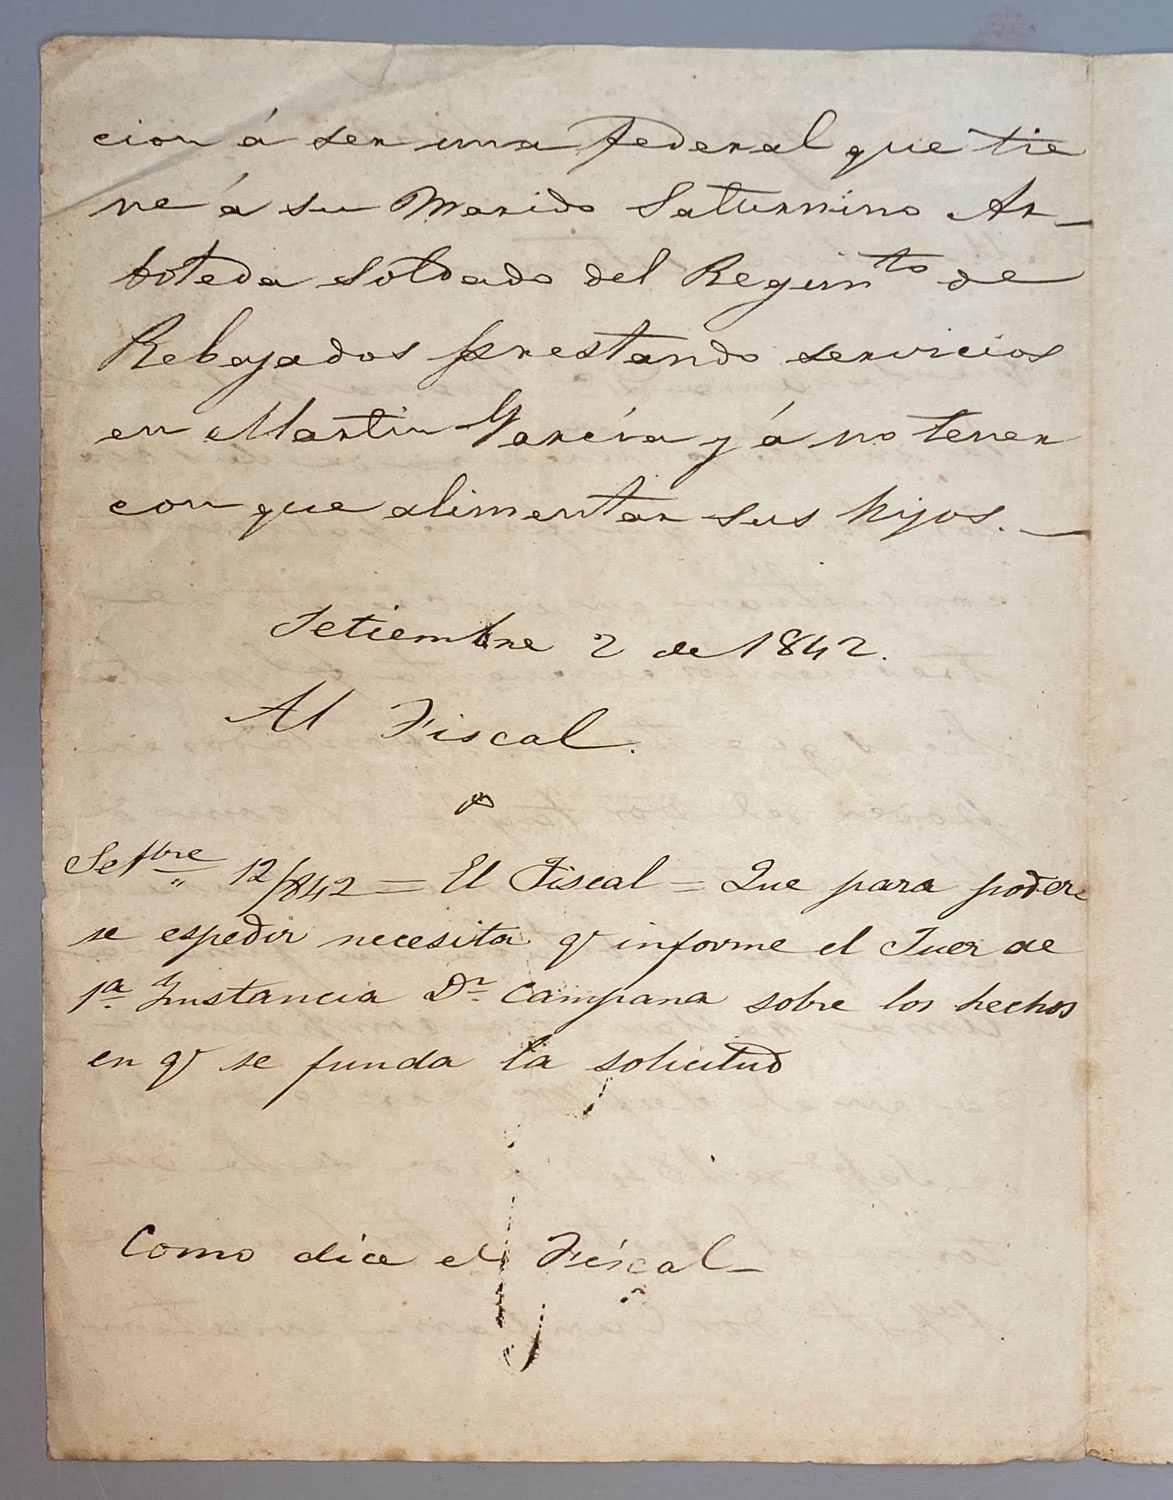 cion á ser una federal que tie
ne á su Marido Saturnino Ar_
boleda Soldado del Regimto de
Rebajados prestando servicios
en Martin Garcia y á no tener
con que alimentar sus hijos. _
Setiembre 2 de 1842.
Al Fiscal.
Setbre 12/842 = El Fiscal = Que para poder
se espedir necesita qe informe el Juez de
1a Instancia Dr Campana sobre los hechos
en qe se funda la solicitud
Como dice el Fiscal_